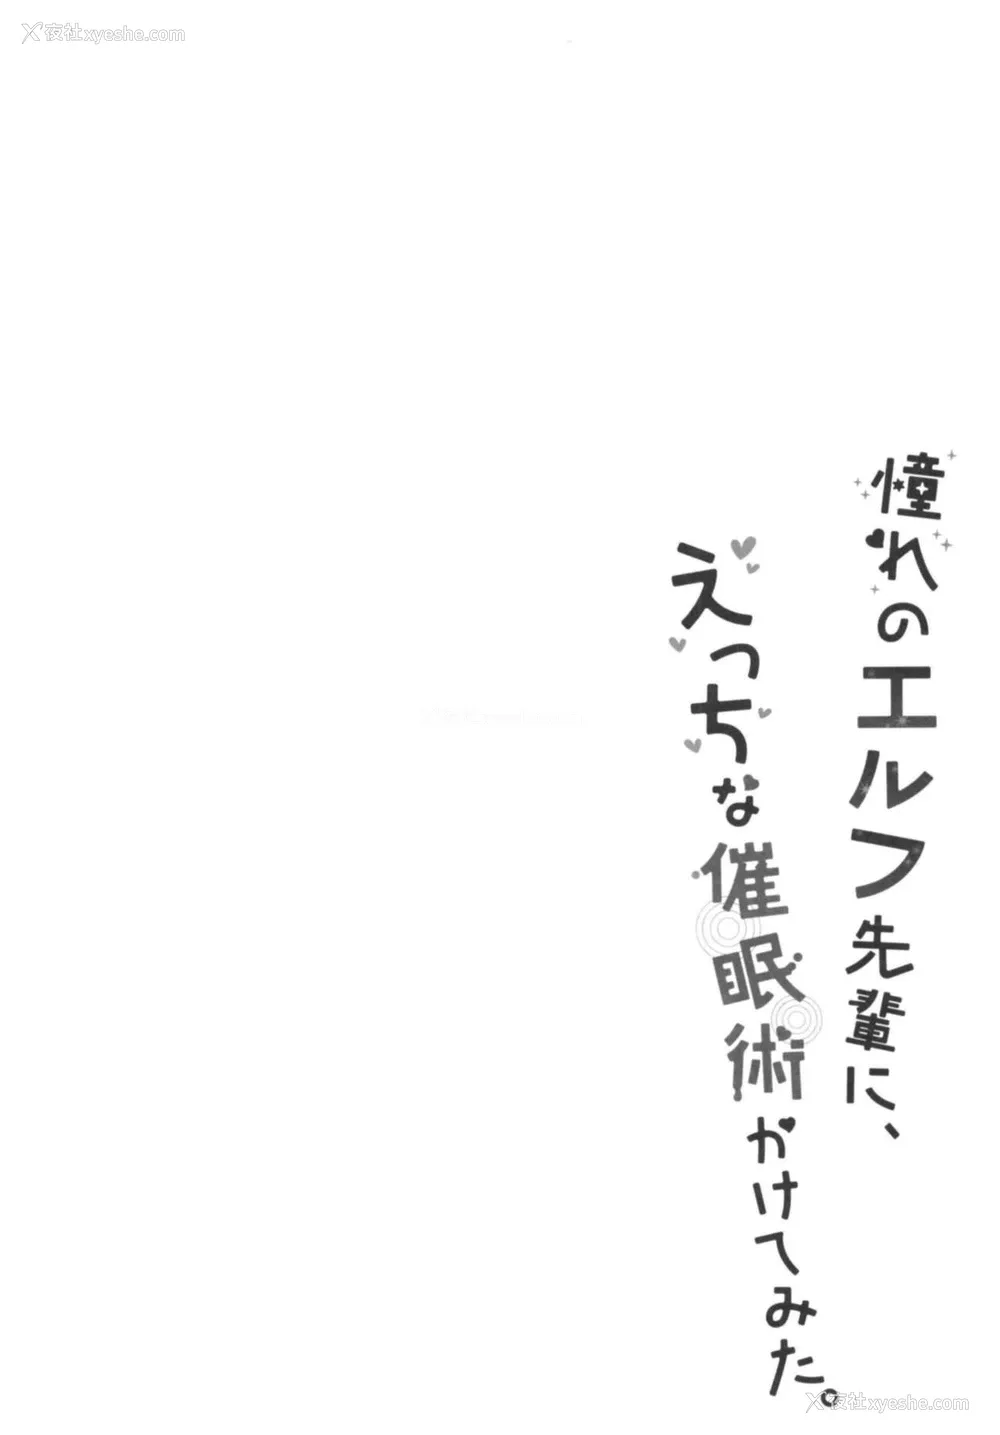 夜社xyeshe.com
憧れのエルフ先輩に、
えっちな催眠術かけてみた。
夜社xyeshe.com